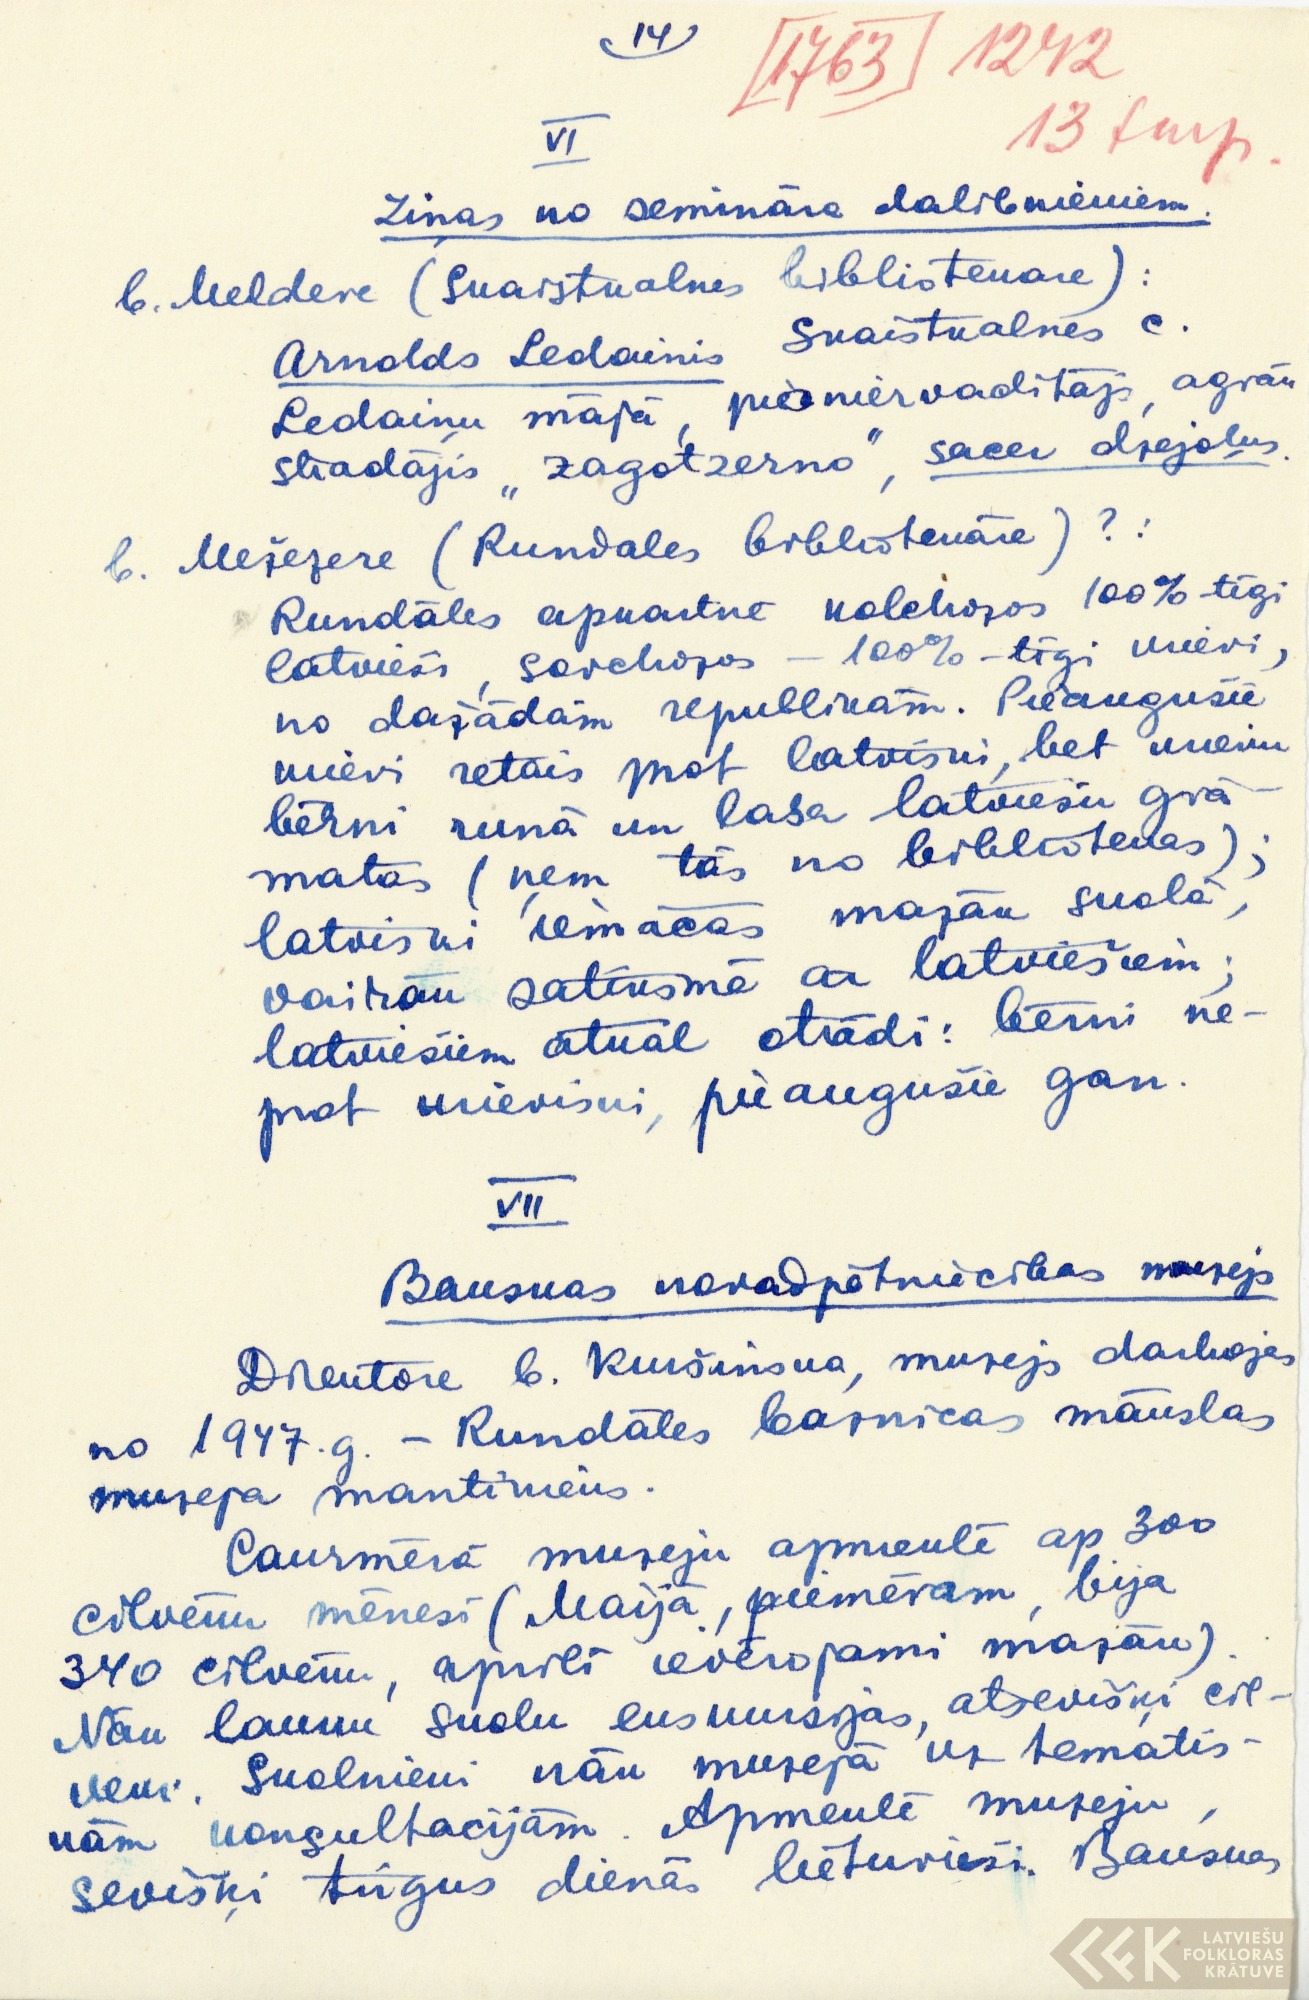 14
[1763] 1242
13 turp.
VI
Ziņas no semināra dalībniekiem.
b. Meldere (Skaistkalnes bibliotekāre):
Arnolds Ledainis Skaistkalnes c.
Ledaiņu mājā, pioniervadītājs, agrāk
strādājis „Zagotzerno”, sacer dzejoļus.
b. Mežezere (Rundāles bibliotekāre)?:
Rundāles apkārtnē kolchozos 100%-tīgi
latvieši, sovchozos – 100%-tīgi krievi,
no dažādām republikām. Pieaugušie
krievi retais prot latviski, bet krievu
bērni runā un lasa latviešu grā-
matas (ņem tās no bibliotekas);
latviski iemācās mazāk skolā,
vairāk satiksmē ar latviešiem;
latviešiem atkal otrādi: bērni ne-
prot krieviski, pieaugušie gan.
VII
Bauskas novadpētniecības muzejs
Direktore b. Kuršinska, muzejs darbojas
no 1947.g. – Rundāles baznīcas mākslas
muzeja mantinieks.
Caurmērā muzeju apmeklē ap 300
cilvēku mēnesī (Maijā, piemēram, bija
340 cilvēku, aprīlī ievērojami mazāk).
Nāk lauku skolu ekskursijas, atsevišķi cil-
vēki. Skolnieki nāk muzejā uz tematis-
kām konsultācijām. Apmeklē muzeju,
sevišķi tirgus dienās lietuvieši. Bauskas
LATVIEŠU
FOLKLORAS
KRĀTUVE